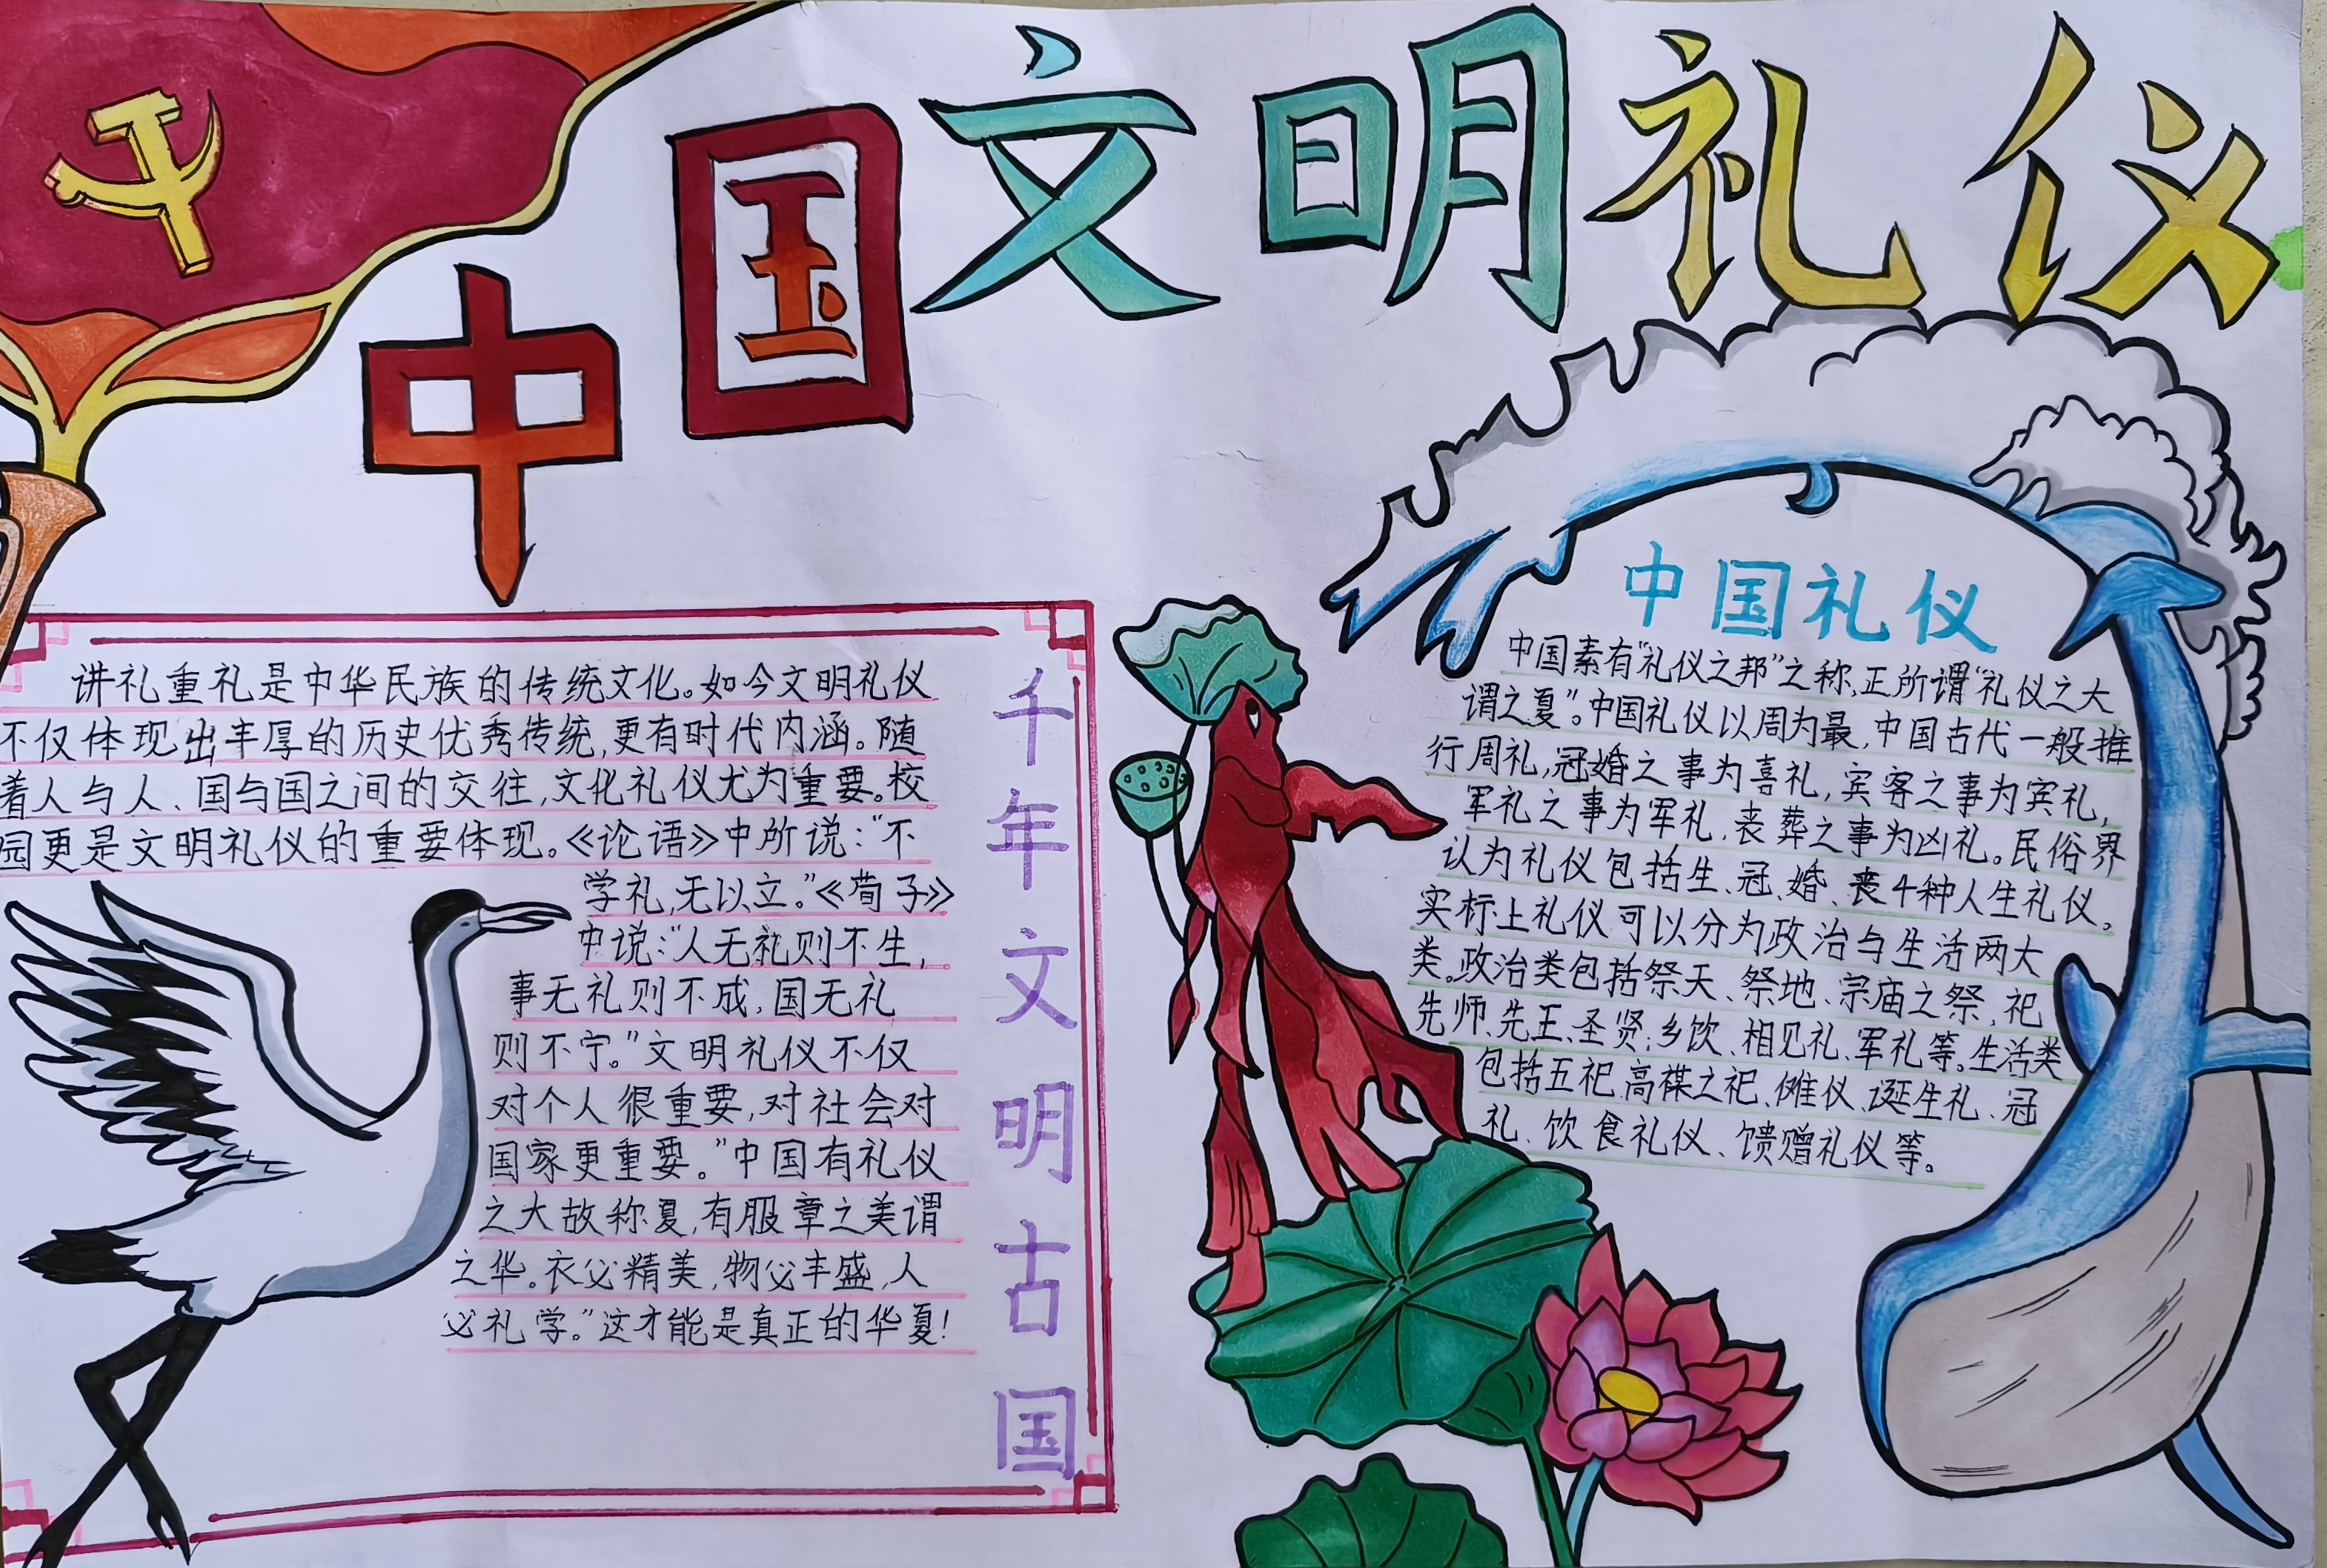 中国文明礼仪
讲礼重礼是中华民族的传统文化。如今文明礼仪
不仅体现出丰厚的历史优秀传统,更有时代内涵。随
着人与人、国与国之间的交往,文化礼仪尤为重要。校
园更是文明礼仪的重要体现。《论语》中所说:“不
学礼,无以立。”《荀子》
中说:“人无礼则不生,
事无礼则不成,国无礼
则不宁。”文明礼仪不仅
对个人很重要,对社会对
国家更重要。”中国有礼仪
之大故称夏,有服章之美谓
之华。衣必精美,物必丰盛,人
必礼学。”这才能是真正的华夏!
千年文明古国
中国礼仪
中国素有“礼仪之邦”之称,正所谓“礼仪之大
谓之夏”。中国礼仪以周为最,中国古代一般推
行周礼,冠婚之事为喜礼,宾客之事为宾礼,
军礼之事为军礼,丧葬之事为凶礼。民俗界
认为礼仪包括生、冠、婚、丧4种人生礼仪。
实标上礼仪可以分为政治与生活两大
类。政治类包括祭天、祭地、宗庙之祭,祀
先师、先王、圣贤;乡饮、相见礼、军礼等。生活类
包括五祀、高禖之祀、傩仪、诞生礼、冠
礼、饮食礼仪、馈赠礼仪等。